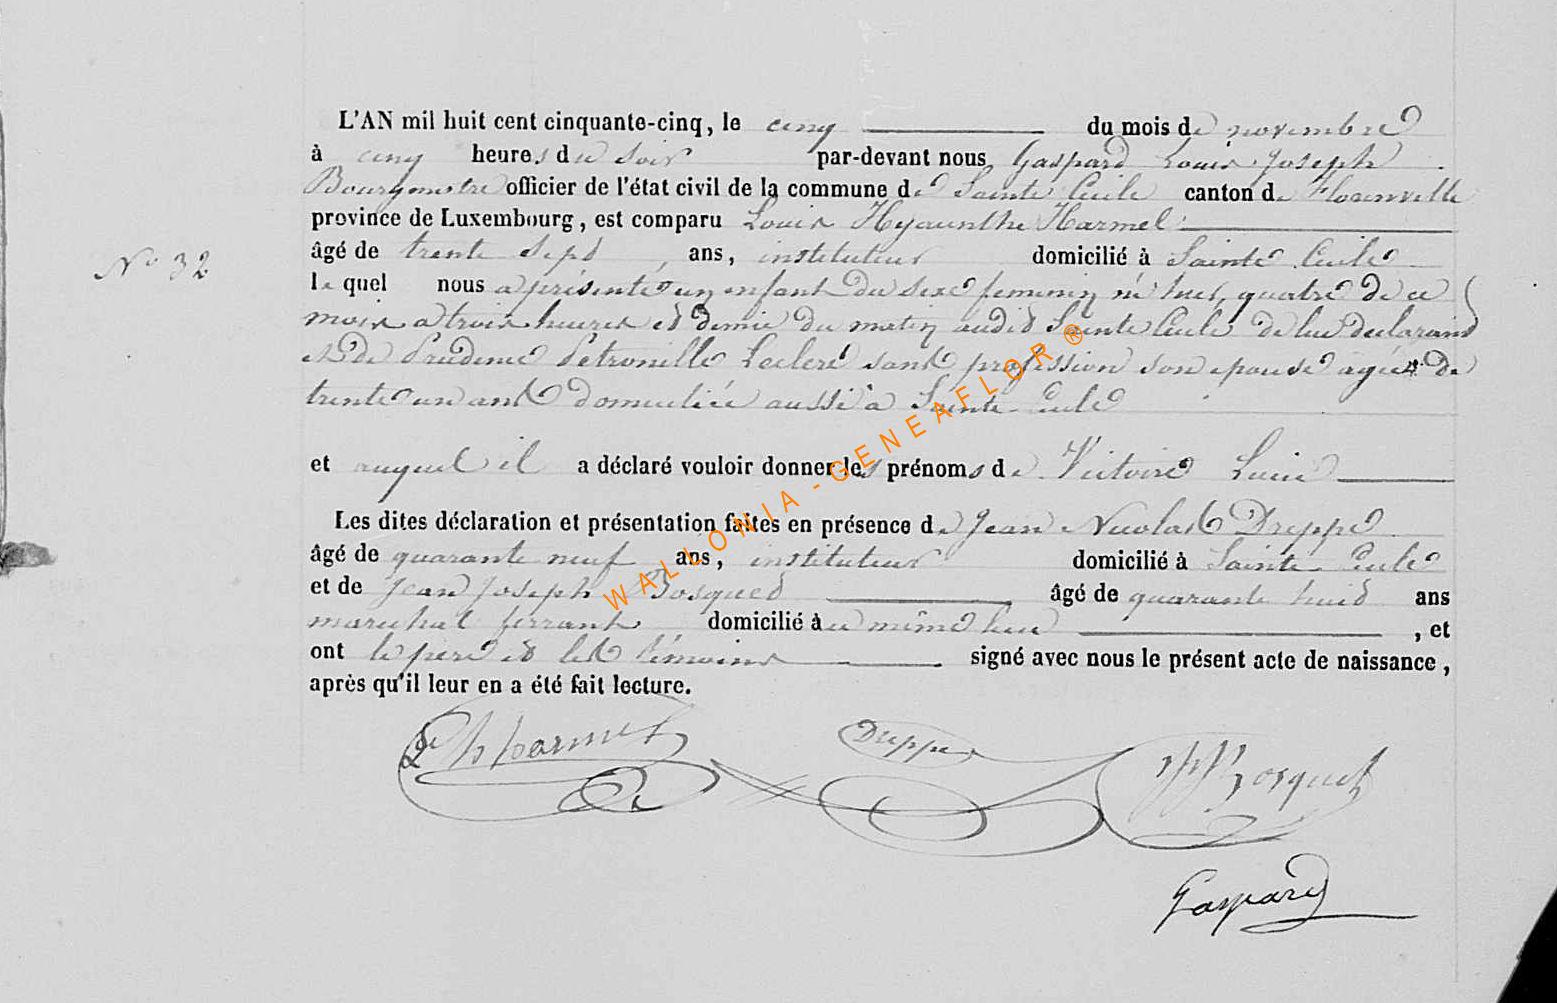 L'AN mil huit cent cinquante-cinq, le cinq du mois de novembre
à cinq heures du soir par-devant nous Gaspard Louis Joseph
Bourgmestre officier de l'état civil de la commune de Sainte Cecile canton de Florenville
province de Luxembourg, est comparu Louis Hyacinthe Harmel
N° 32
âgé de trente sept ans, instituteur domicilié à Sainte Cecile
lequel nous a présenté un enfant du sexe feminin né hier, quatre de ce
mois a trois heures et demie du matin audit Sainte Cecile de lui declarant
et de Prudence Petronille Leclere sans profession son epouse agée de
trente un ans domiciliée aussi à Sainte Cecile
et auquel il a déclaré vouloir donner les prénoms de Victoire Lucie
Les dites déclaration et présentation faites en présence de Jean Nicolas Dreppe
âgé de quarante neuf ans, instituteur domicilié à Sainte Cecile
et de Jean Joseph Bosquet âgé de quarante huit ans
marechal ferrant domicilié à ce même lieu , et
ont le pere et les témoins signé avec nous le présent acte de naissance,
après qu'il leur en a été fait lecture.
WALLONIA-GENEAFLOR®
Lh Harmel Dreppe JJ Bosquet
Gaspard